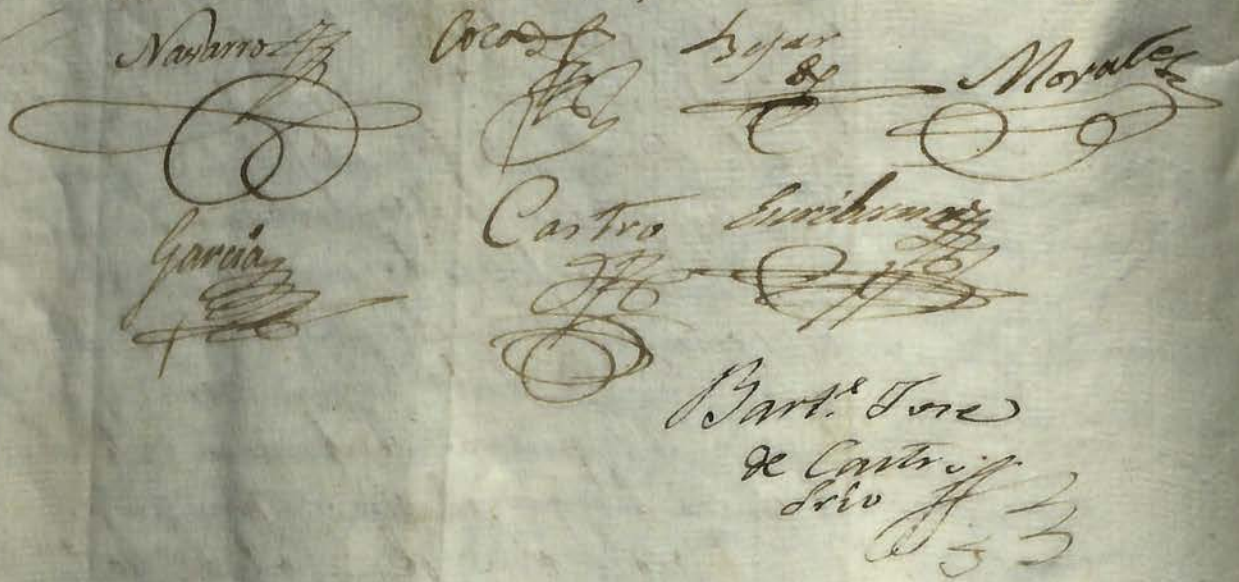 Navarro Coca Bejar Morales
Garcia Castro
Bart.e Jose
de Castro
Srio